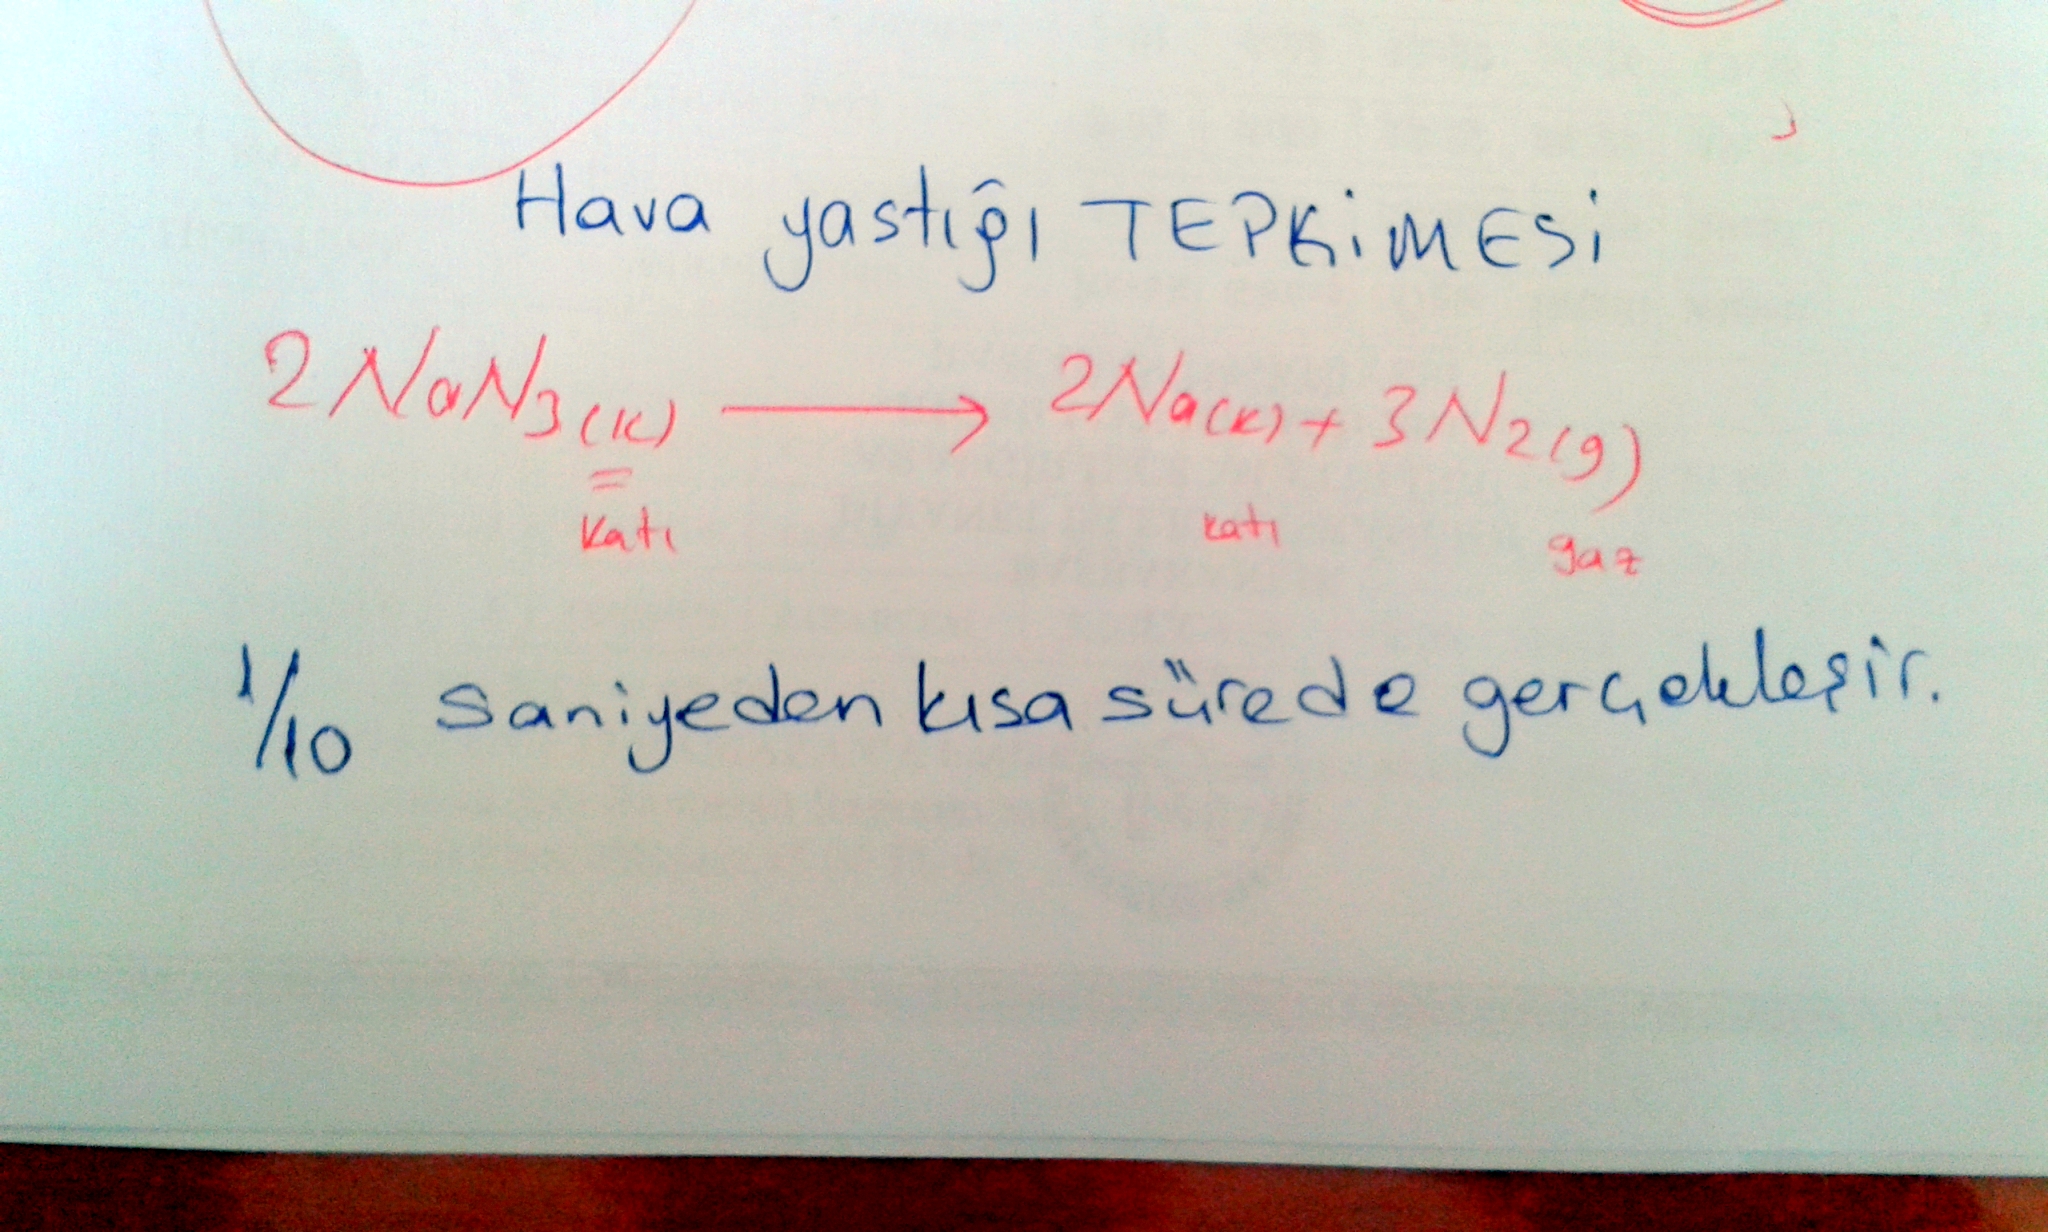 Hava yastığı TEPKİMESİ
2NaN3(k) → 2Na(k) + 3N2(g)
katı katı gaz
1/10 saniyeden kısa sürede gerçekleşir.